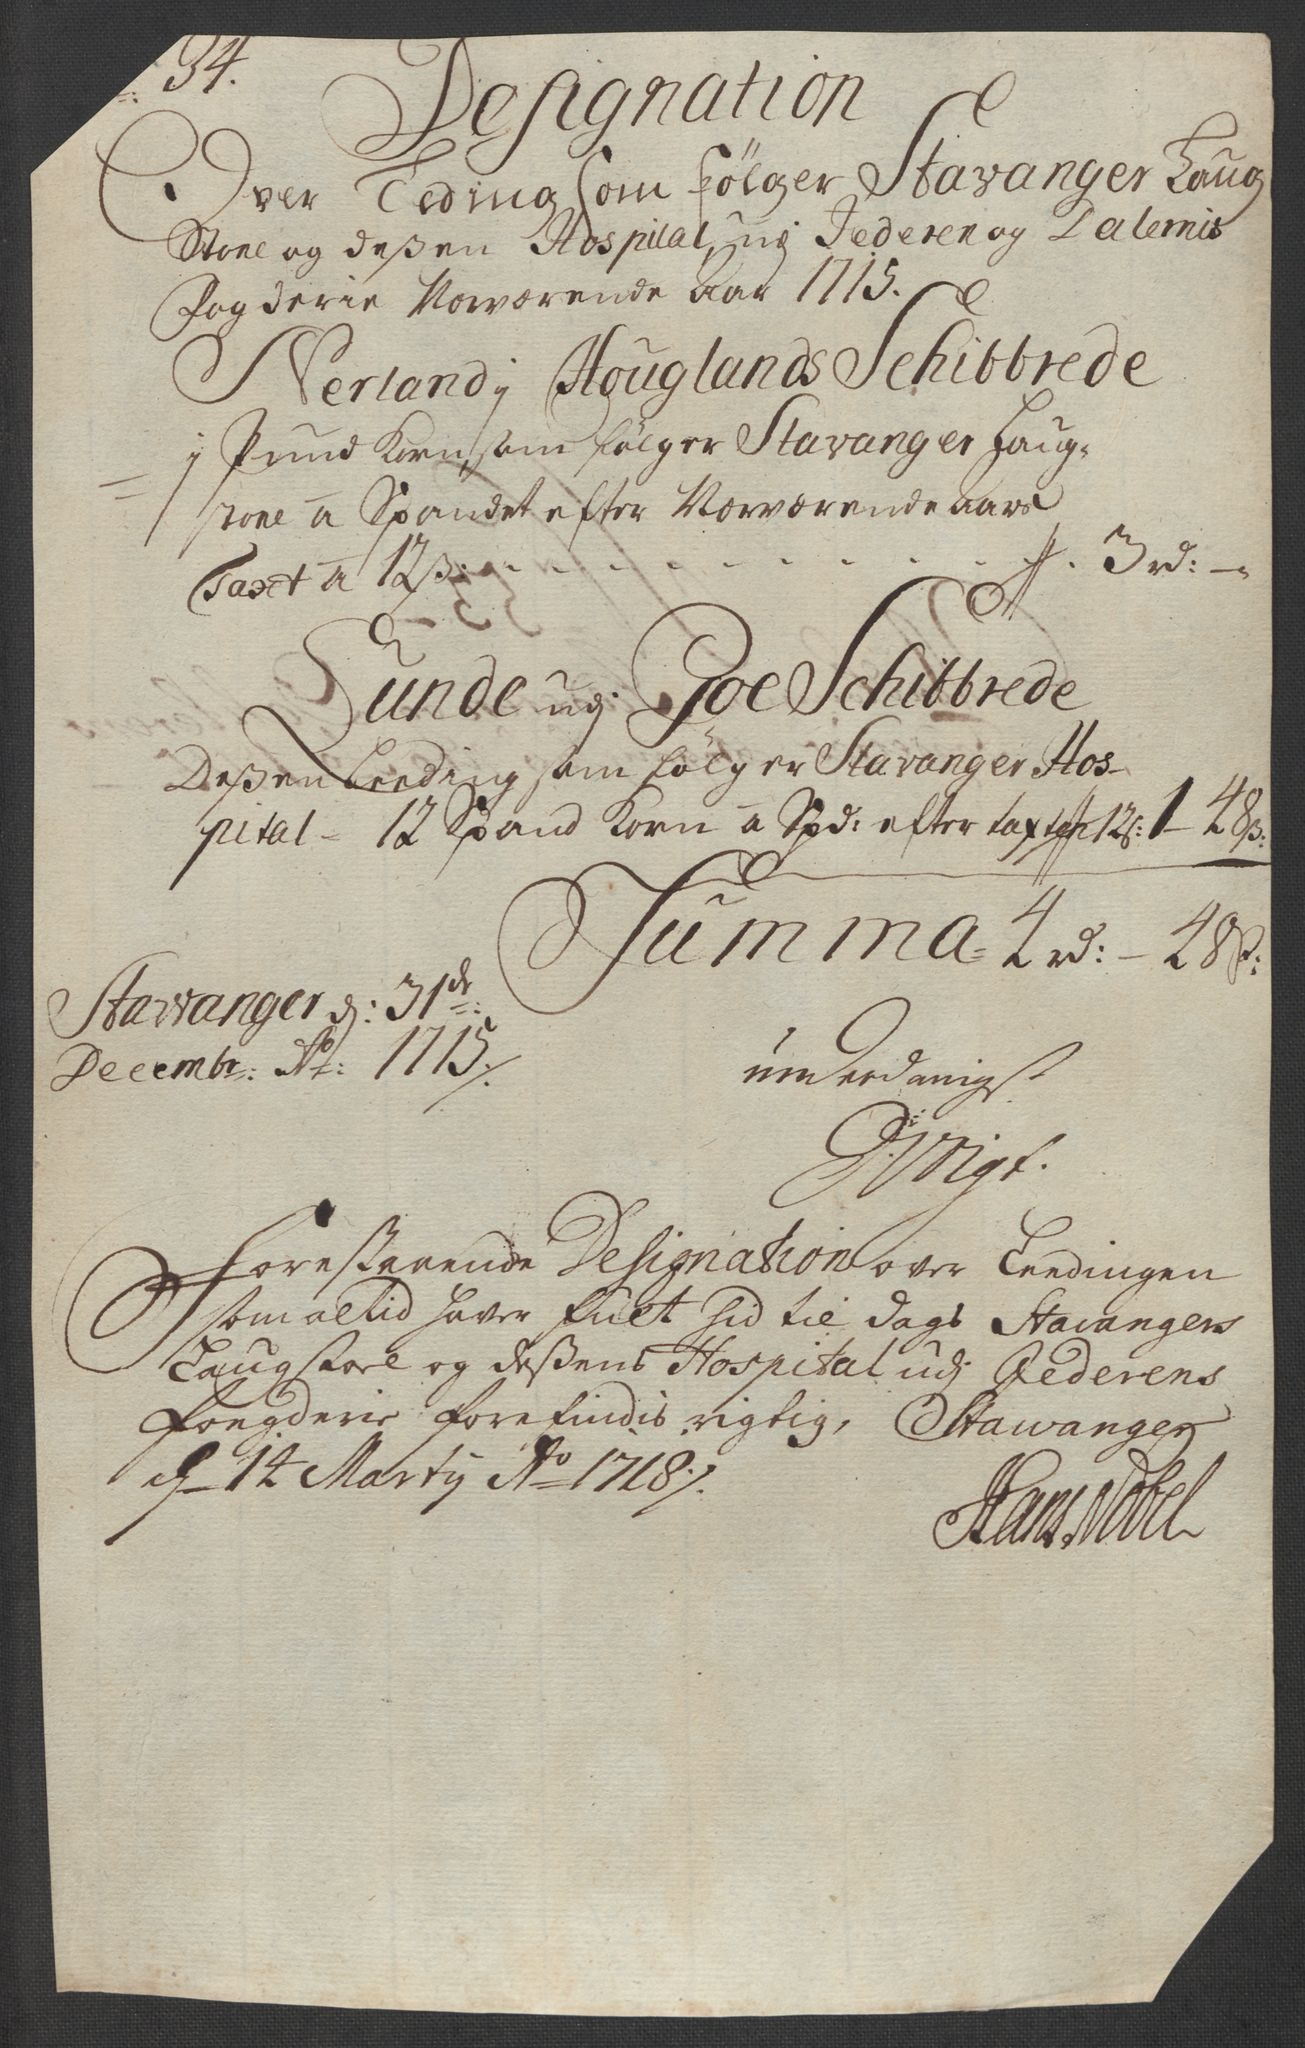 34.
Designation
Over Leding som følger Stavanger Laug
Stoel og deßen Hospital, udj Jederen og Dalernis
Fogderie Nærværende Aar 1715.
Nerland j Houglands Schibbrede
j Pund Korn, som følger Stavanger Laug-
stoel a Spandet efter Nærværende aars
Taxt a 12 ß: - - - - - - - - - 3 rd: -
Lunde udj Goe Schibbrede
Deßen Leeding som følger Stavanger Hos-
pital - 12 Spand Korn a Spd: efter taxten 12 ß: 1 - 48 ß:
Summa - 4 rd: - 48 ß:
Stavanger d: 31de:
Decembr: Ao: 1715 ./.
underdanigst
Voigt.
Forestaaende Designation over Leedingen
som altid haver fult hid til dags Stavangers
Laugstoel og deßens Hospital udj Jederens
Foegderie forefindis rigtig, Stawanger
d 14 Martij Ao 1718 ./.
Hans Nobel